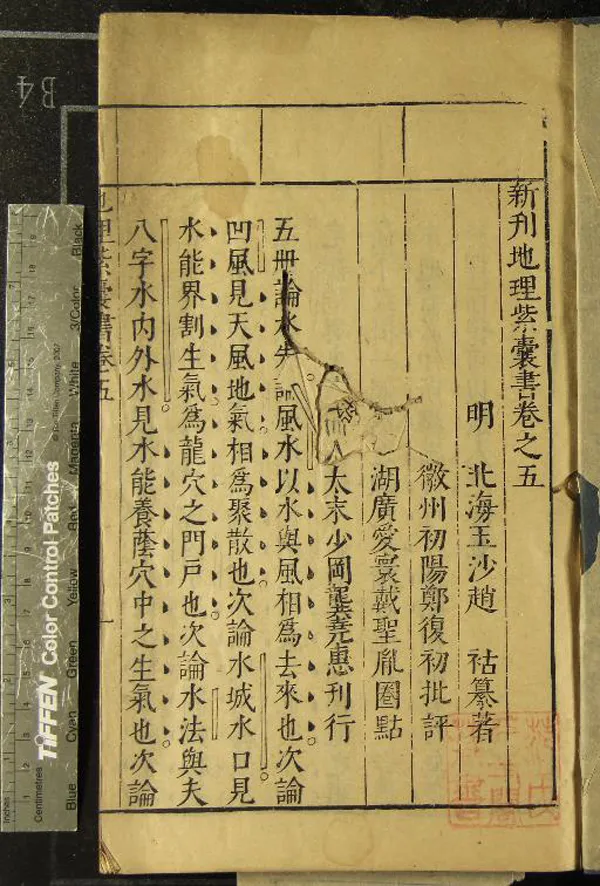 新刊地理紫囊書卷之五
明 北海玉沙趙 祜纂著
徽州初陽鄭復初批評
湖廣愛裳戴聖胤圈點
太末少岡龔堯惠刊行
五冊論水先論風水以水與風相為去來也次論
凹風見天風地氣相為聚散也次論水城水口見
水能界割生氣為龍穴之門戶也次論水法與夫
八字水內外水見水能養蔭穴中之生氣也次論
地理紫囊書卷五
一
B4
Inches
Centimetres
TIFFEN Color Control Patches
© The Tiffen Company, 2007
Blue Cyan Green Yellow Red Magenta White 3/Color Black